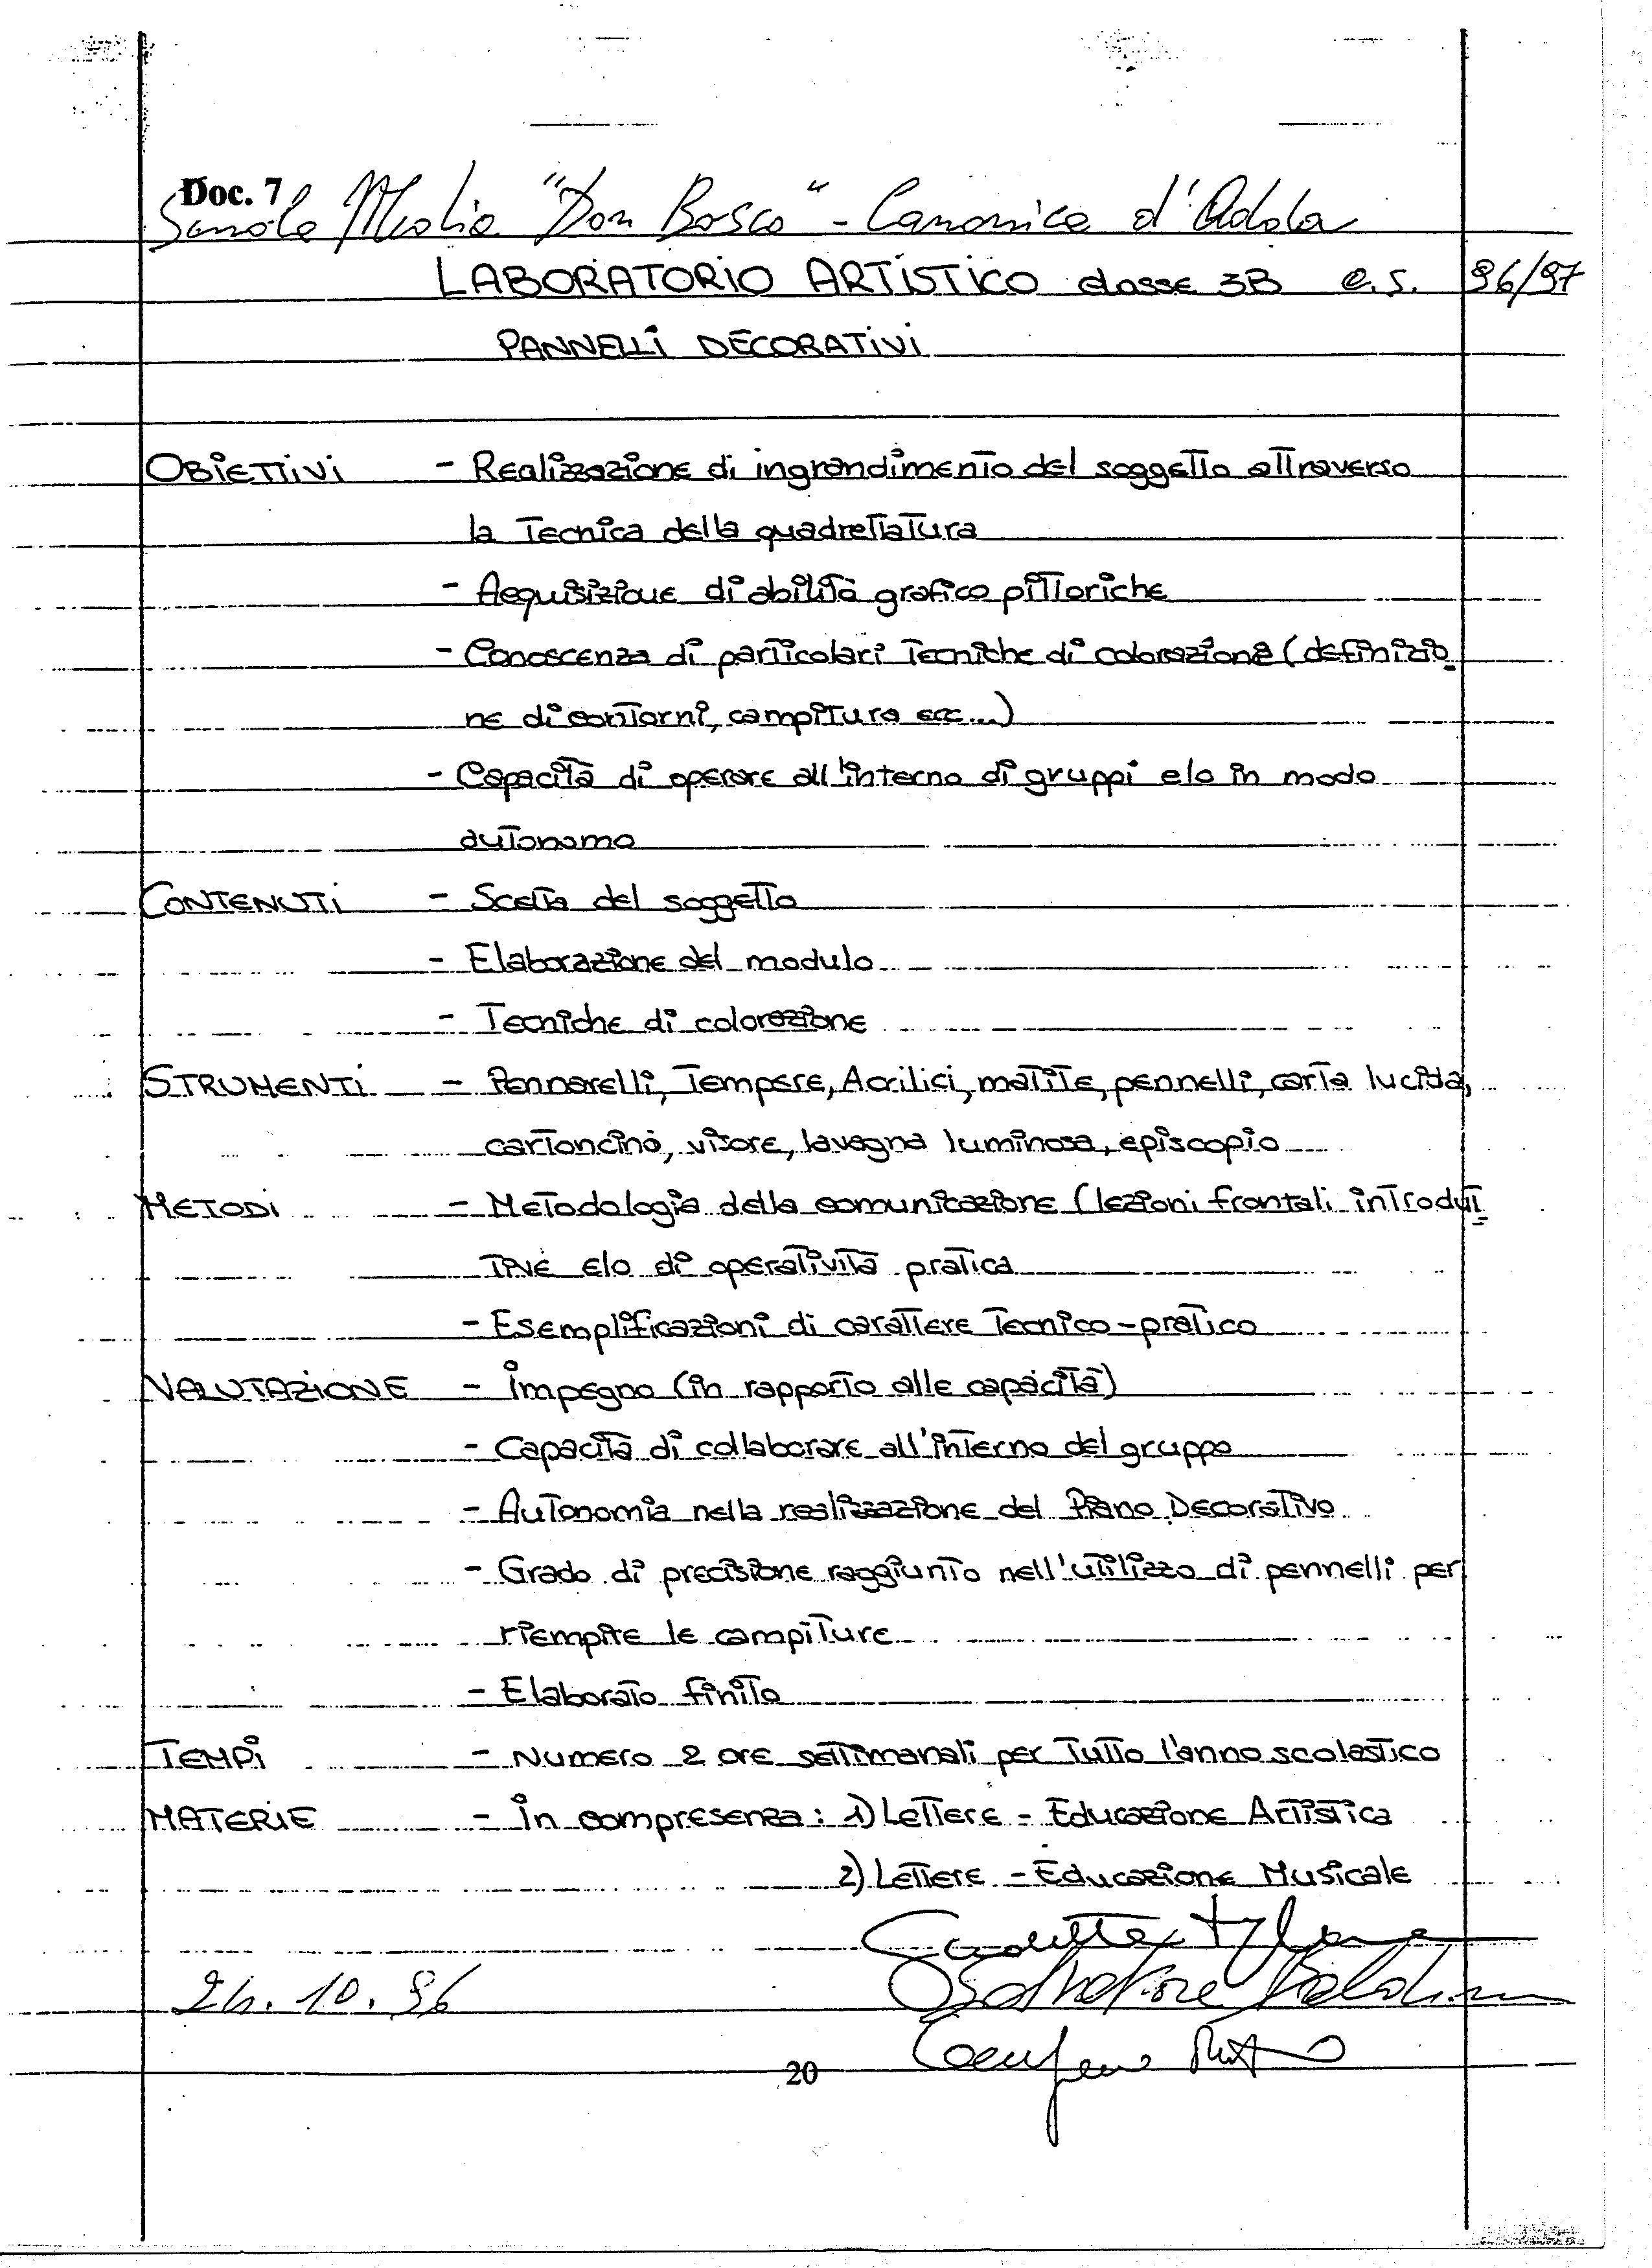 Doc. 7
Scuola Media "Don Bosco" - Canonica d'Adda
LABORATORIO ARTISTICO classe 3B a.s. 96/97
PANNELLI DECORATIVI
OBIETTIVI - Realizzazione di ingrandimento del soggetto attraverso
la Tecnica della quadrettatura
- Acquisizione di abilità grafico pittoriche
- Conoscenza di particolari Tecniche di colorazione (definizio
ne di contorni, campitura ecc...)
- Capacità di operare all'interno di gruppi e/o in modo
autonomo
CONTENUTI - Scelta del soggetto
- Elaborazione del modulo
- Tecniche di colorazione
STRUMENTI - Pennarelli, Tempere, Acrilici, matite, pennelli, carta lucida,
cartoncino, visore, lavagna luminosa, episcopio
METODI - Metodologia della comunicazione (lezioni frontali introdut
tive e/o di operatività pratica
- Esemplificazioni di carattere Tecnico-pratico
VALUTAZIONE - Impegno (in rapporto alle capacità)
- Capacità di collaborare all'interno del gruppo
- Autonomia nella realizzazione del Piano Decorativo
- Grado di precisione raggiunto nell'utilizzo di pennelli per
riempire le campiture
- Elaborato finito
TEMPI - Numero 2 ore settimanali per Tutto l'anno scolastico
MATERIE - In compresenza: 1) Lettere - Educazione Artistica
2) Lettere - Educazione Musicale
Salvatore
24.10.96
20